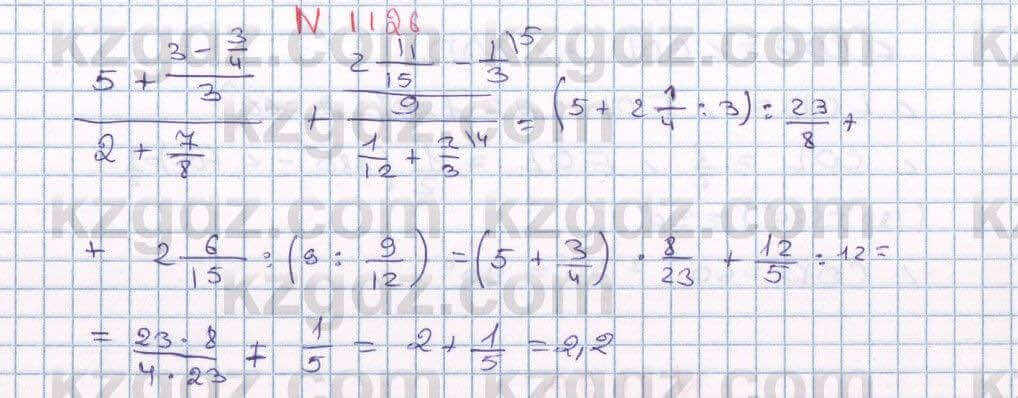 N 1126
(5 + (3 - 3/4)/3)/(2 + 7/8) + ((2 11/15 - 1/3\5)/9)/(1/12 + 2/3\4) = (5 + 2 1/4 : 3) : 23/8 +
+ 2 6/15 : (9 : 9/12) = (5 + 3/4) · 8/23 + 12/5 : 12 =
= 23·8/4·23 + 1/5 = 2 + 1/5 = 2,2
kzgdz.com kzgdz.com
kzgdz.com
kzgdz.com kzgdz.com
kzgdz.com